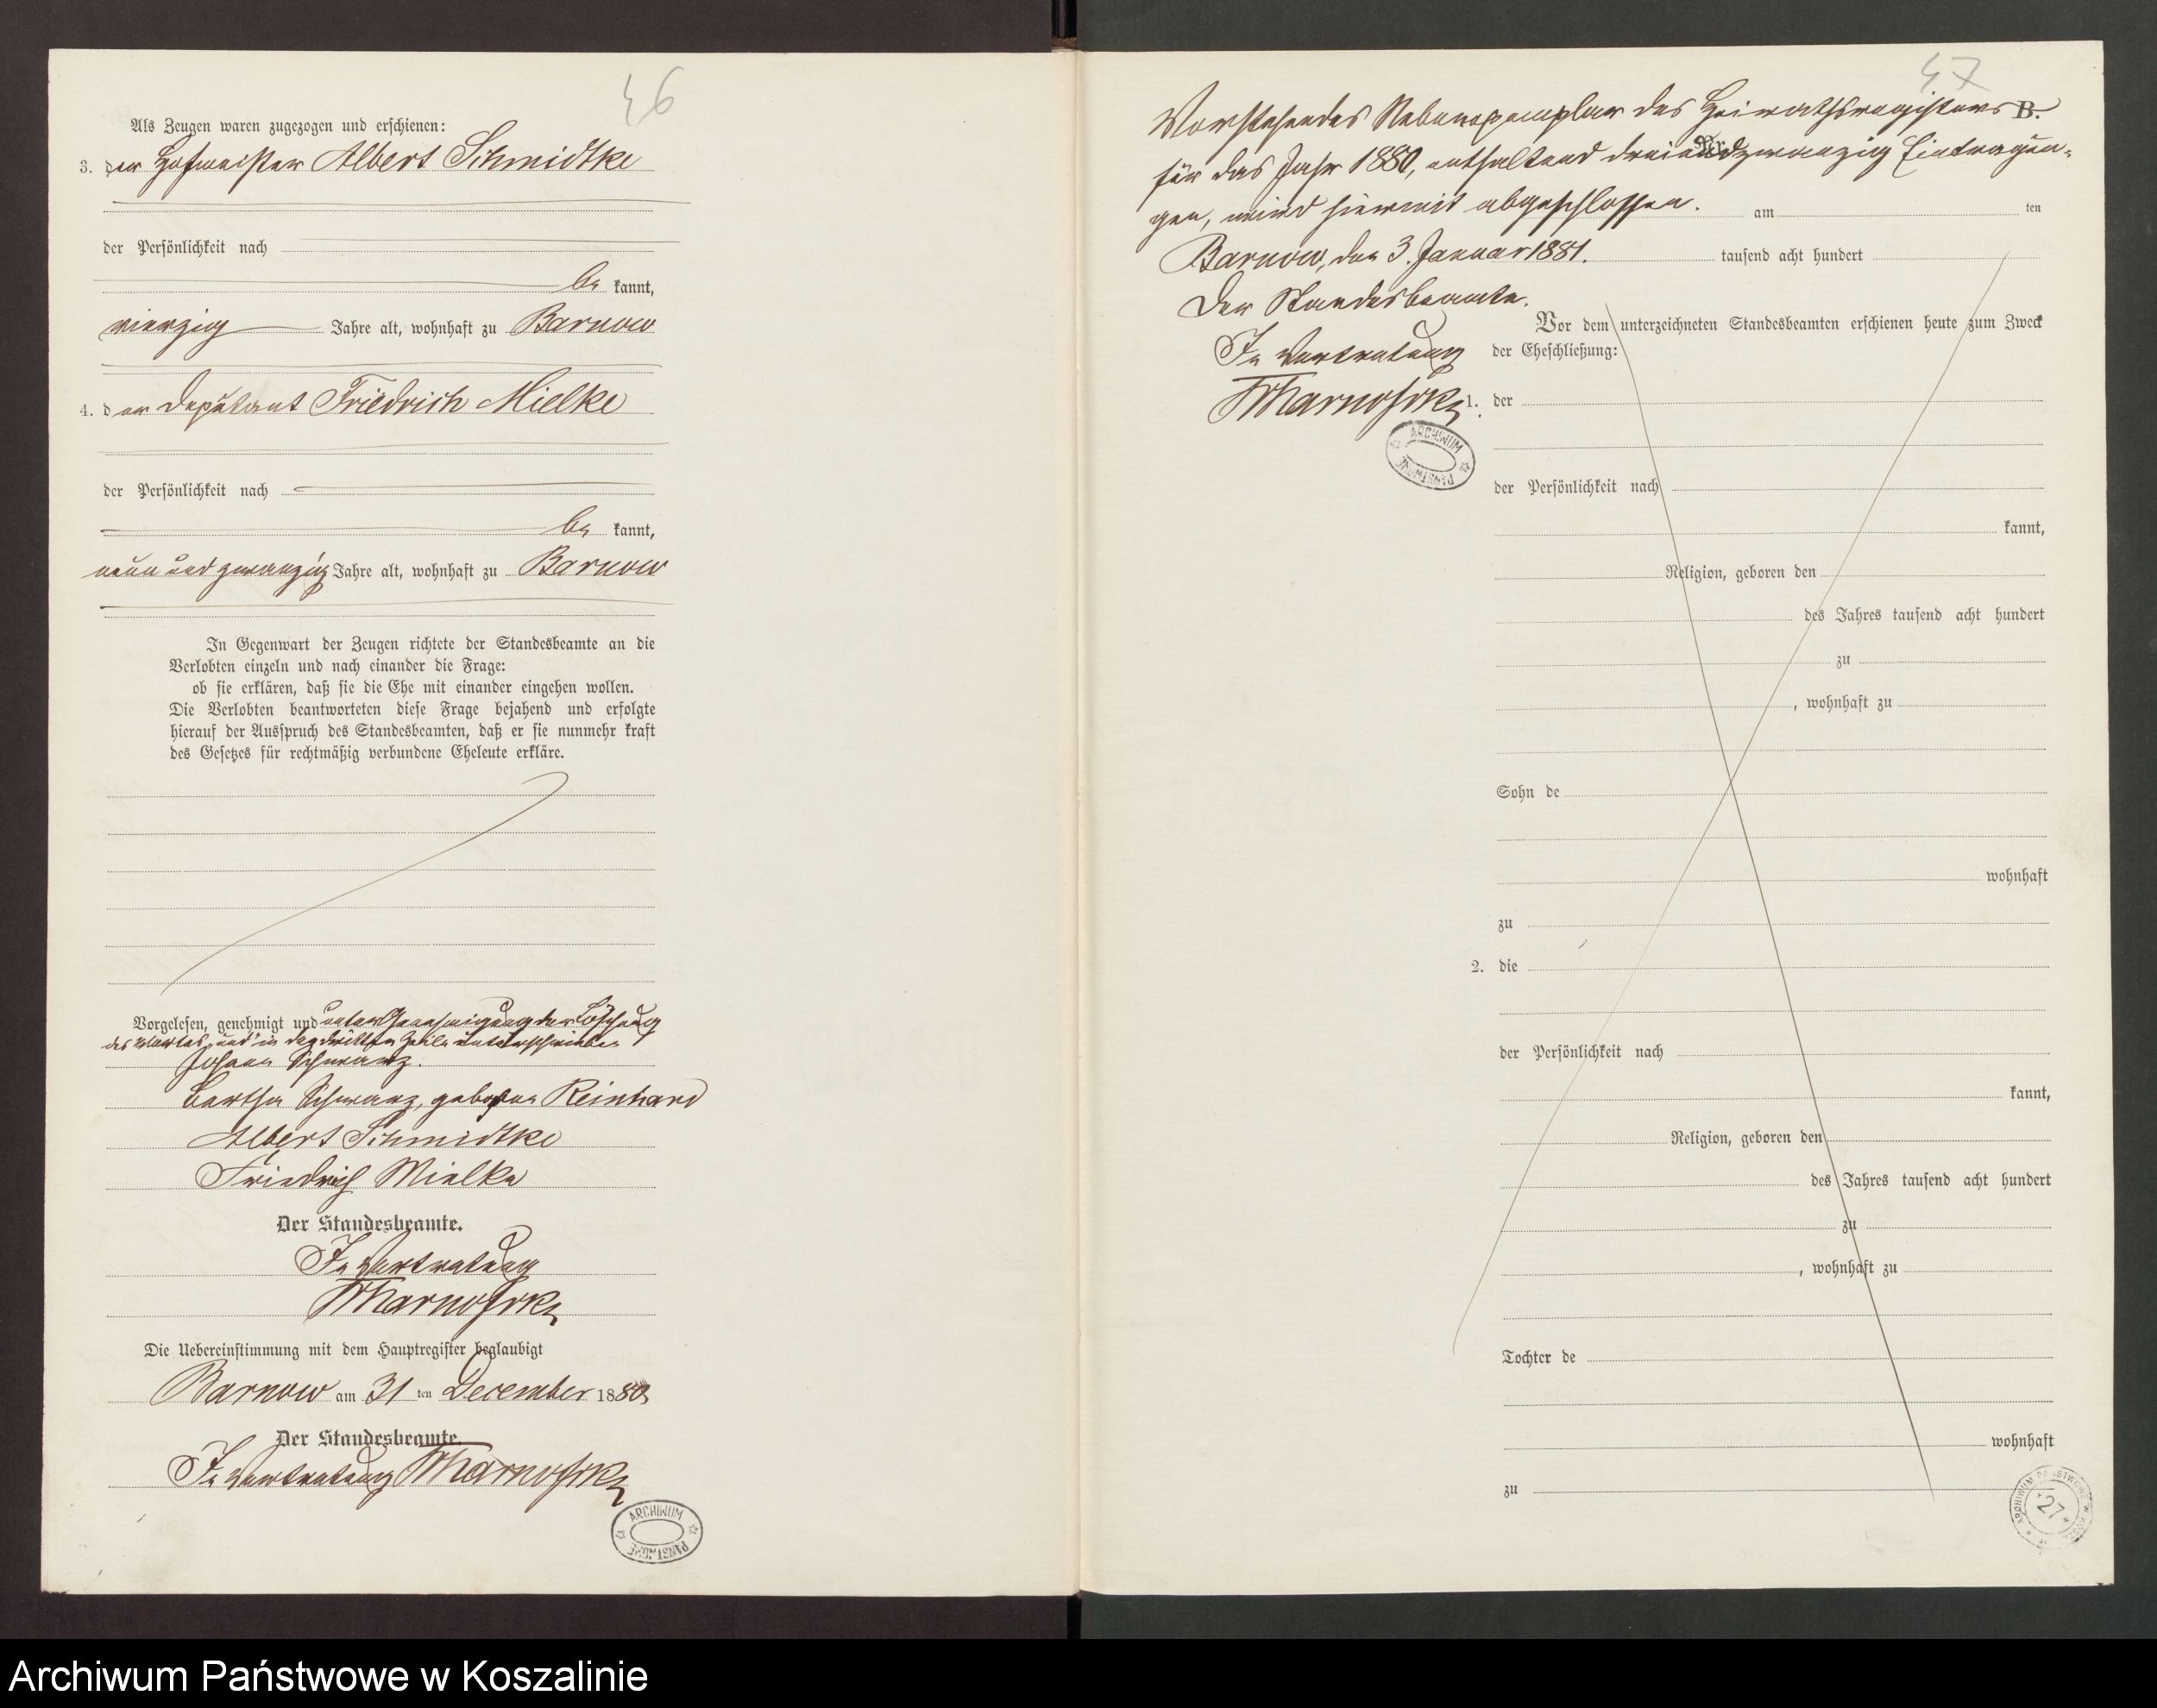 46
Als Zeugen waren zugezogen und erschienen:
3. der Hofmeister Albert Schmidtke
der Persönlichkeit nach
be kannt,
vierzig Jahre alt, wohnhaft zu Barnow
4. der Deputant Friedrich Mielke
der Persönlichkeit nach
be kannt,
neun und zwanzig Jahre alt, wohnhaft zu Barnow
In Gegenwart der Zeugen richtete der Standesbeamte an die
Verlobten einzeln und nach einander die Frage:
ob sie erklären, daß sie die Ehe mit einander eingehen wollen.
Die Verlobten beantworteten diese Frage bejahend und erfolgte
hierauf der Ausspruch des Standesbeamten, daß er sie nunmehr kraft
des Gesetzes für rechtmäßig verbundene Eheleute erkläre.
Vorgelesen, genehmigt und unter Genehmigung der Löschung
des Wortes „und“ in der dritten Zeile unterschrieben
Johann Schwarz.
Bertha Schwarz, geborne Reinhard
Albert Schmidtke
Friedrich Mielke
Der Standesbeamte.
In Vertretung
Die Uebereinstimmung mit dem Hauptregister beglaubigt
Barnow am 31 ten December 1880
Der Standesbeamte.
In Vertretung
ARCHIWUM PAŃSTWOWE
47
Vorstehendes Nebenexemplar des Heirathsregisters B.
für das Jahr 1880, enthaltend dreiundzwanzig Eintragun-
gen, wird hiermit abgeschlossen. am ten
Barnow, den 3. Januar 1881. tausend acht hundert
Der Standesbeamte.
Vor dem unterzeichneten Standesbeamten erschienen heute zum Zweck
In Vertretung der Eheschließung:
1. der
ARCHIWUM PAŃSTWOWE
der Persönlichkeit nach
kannt,
Religion, geboren den
des Jahres tausend acht hundert
zu
, wohnhaft zu
Sohn de
wohnhaft
zu
2. die
der Persönlichkeit nach
kannt,
Religion, geboren den
des Jahres tausend acht hundert
zu
, wohnhaft zu
Tochter de
wohnhaft
zu
ARCHIWUM PAŃSTWOWE W
27
Archiwum Państwowe w Koszalinie